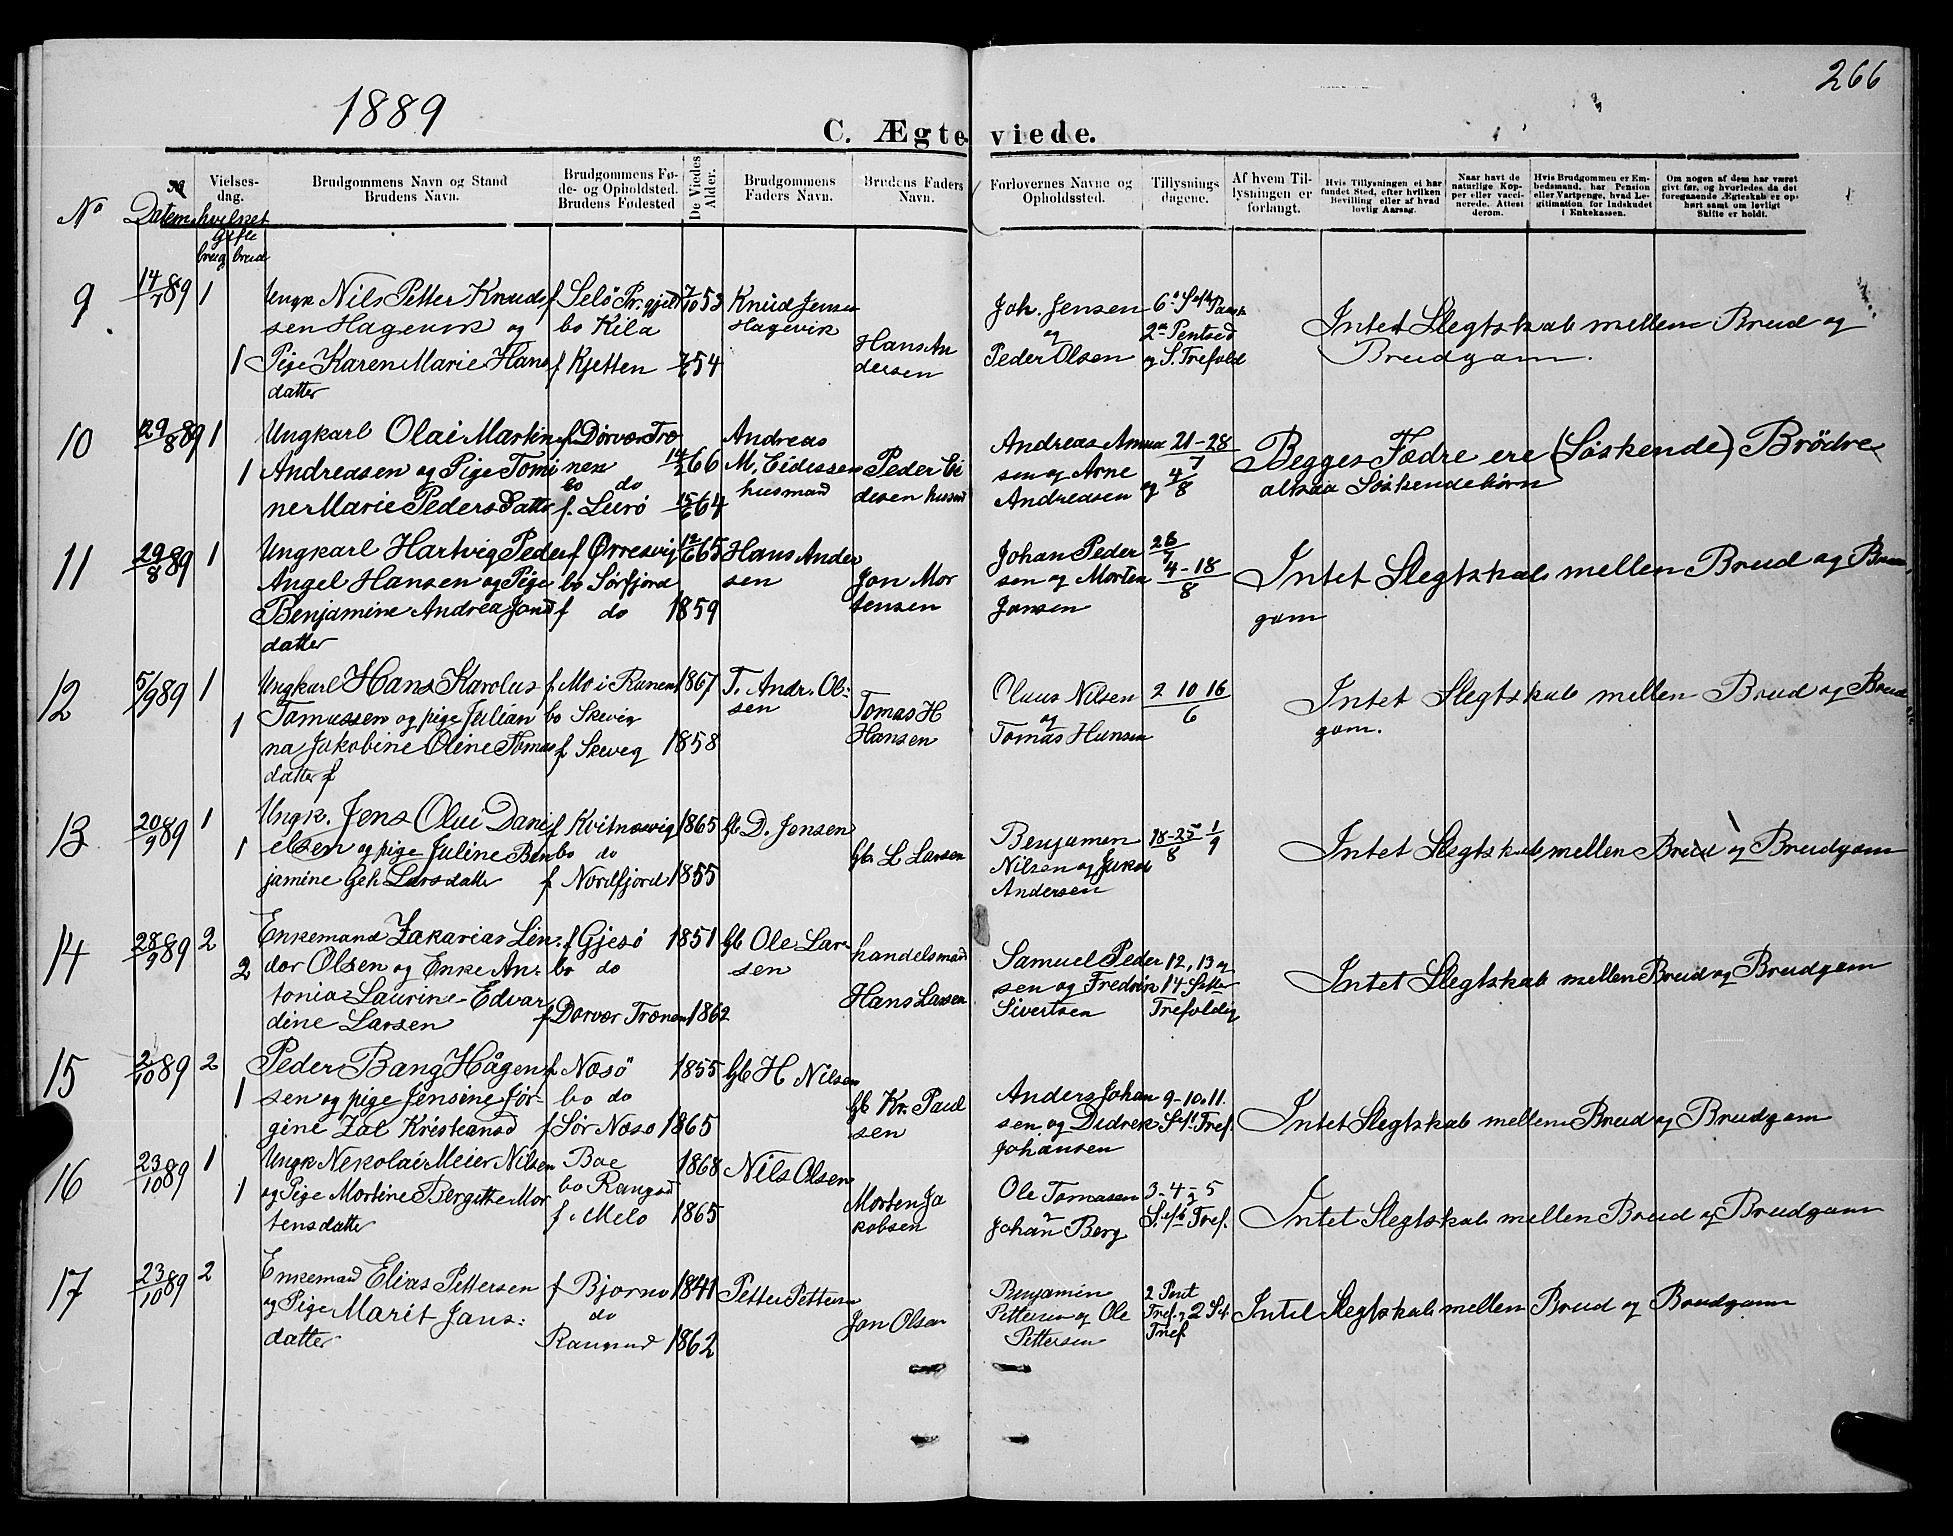 1889
266
C. Ægteviede.
No
Datem
Vielses-dag.
hvilket
Gifte
brug brud
Brudgommens Navn og Stand
Brudens Navn.
Brudgommens Fø-
de- og Opholdsted.
Brudens Fødested
De Viedes Alder.
Brudgommens
Faders Navn.
Brudens Faders
Navn.
Forlovernes Navne og
Opholdssted.
Tillysnings
dagene.
Af hvem Til-
lysningen er
forlangt.
Hvis Tillysningen ei har
fundet Sted, efter hvilken
Bevilling eller af hvad
lovlig Aarsag.
Naar havt de
naturlige Kop-
per eller vacci-
nerede. Attest
derom.
Hvis Brudgommen er Em-
bedsmand, har Pension
eller Vartpenge, hvad Le-
gitimation for Indskudet
i Enkekassen.
Om nogen af dem har været
givt før, og hvorledes da det
foregaaende Ægteskab er op-
hørt samt om lovligt
Skifte er holdt.
9 14/7 89 1
Ungk Nils Petter Knud
sen Hagevik og
1 Pige Karen Marie Hans
datter
f Selö Pr.gjeld 7/10 53
bo Kila
f Kjetten 7/5 54
Knud Jensen
Hagevik
Hans An
dersen
Joh. Jensen
og
Peder Olsen
2n Pentsed
og S. Trefold
Intet Slegtskab mellem Brud og
Brudgom.
10 29/8 89 1
Ungkarl Olai Martin
1 Andreasen og Pige Tomi
ner Marie Peders Datter
f. Dörvær Træ
nen 14/2 66
bo do
f. Lurö 15/6 64
Andreas
M. Eidissen
husmand
Peder Ei
disen husmd
Andreas Amun
sen og Arne
Andreasen
21-28/7
og 4/8
Begges Fædre ere (Söskende) Brödre
altsaa Söskendebörn
11 29/8 89 1
Ungkarl Hartvig Peder
Angel Hansen og Pige
Benjamine Andrea Jons
datter
f Ørresvig 12/6 65
bo Sörfjord
f do 1859
Hans Ander
sen
Jon Mor
tensen
Johan Peder
sen og Morten
Jonsen
28/7
4-18/8
Intet Slegtskab mellem Brud og Brud
gom
12 5/9 89 1
Ungkarl Hans Karolus
1 Tomassen og pige Julian
na Jakobine Oline Tomas
datter f
f Mo i Ranen 1867
bo Skevig
f Skevig 1858
T. Andr. Ol-
sen
Tomas H
Hansen
Olaus Nilsen
og
Tomas Hansen
2 10 16/6
Intet Slegtskab mellem Brud og Brud
gom.
13 20/9 89 1
Ungk. Jens Olai Dani
1 elsen og pige Juline Ben
jamine Geh Larsdatter
f Kvitnesvig 1865
bo do
f Nordfjord 1855
Gb D. Jensen
Gbr L Larsen
Benjamen
Nilsen og Jakob
Andersen
18-25/8 1/9
Intet Slegtskab mellem Brud og Brudgom
14 28/9 89 2
Enkemand Zakarias Lin-
2 dor Olsen og Enke An-
tonia Laurine Edvar
dine Larsen
f Gjesö 1851
bo do
f Dorvær Trænen 1862
Gb Ole Lar
sen
handelsmand
Hans Larsen
Samuel Peder
sen og Fredrik
Sivertsen
12, 13 og
14 Sefter
Trefoldig
Intet Slegtskab mellem Brud og Brudgom
15 2/10 89 2
Peder Bang Hågen
1 sen og pige Jensine Jör-
gine Zal Kristiansd
f Næsö 1855
bo do
f Sör Næsö 1865
Gb H Nilsen
Gb Kr. Paul
sen
Anders Johan
sen og Didrik
Johansen
9-10.11.
S eft. Tref.
Intet Slegtskab mellem Brud og Brudgom
16 23/10 89 1
Ungk Nekolai Meier Nilsen
1 og Pige Mortine Bergitte Mor
tensdatter
Boe 1868
bo Rangsd
f. Melö 1865
Nils Olsen
Morten Ja
kobsen
Ole Tomasen
og
Johan Berg
3-4 og 5
S. eft Tref.
Intet Slegtskab mellem Brud og Brudgom
17 23/10 89 2
Enkemand Elias Pettersen
og Pige Marit Jans:
datter
f Bjørnö 1841
do
Rangsund 1862
Petter Pettersen
Jon Olsen
Benjamin
Pettersen og Ole
Pettersen
2 Pent
Tref. og 2 S. ef.
Tref
Intet Slegtskab mellem Brud og Brudgom